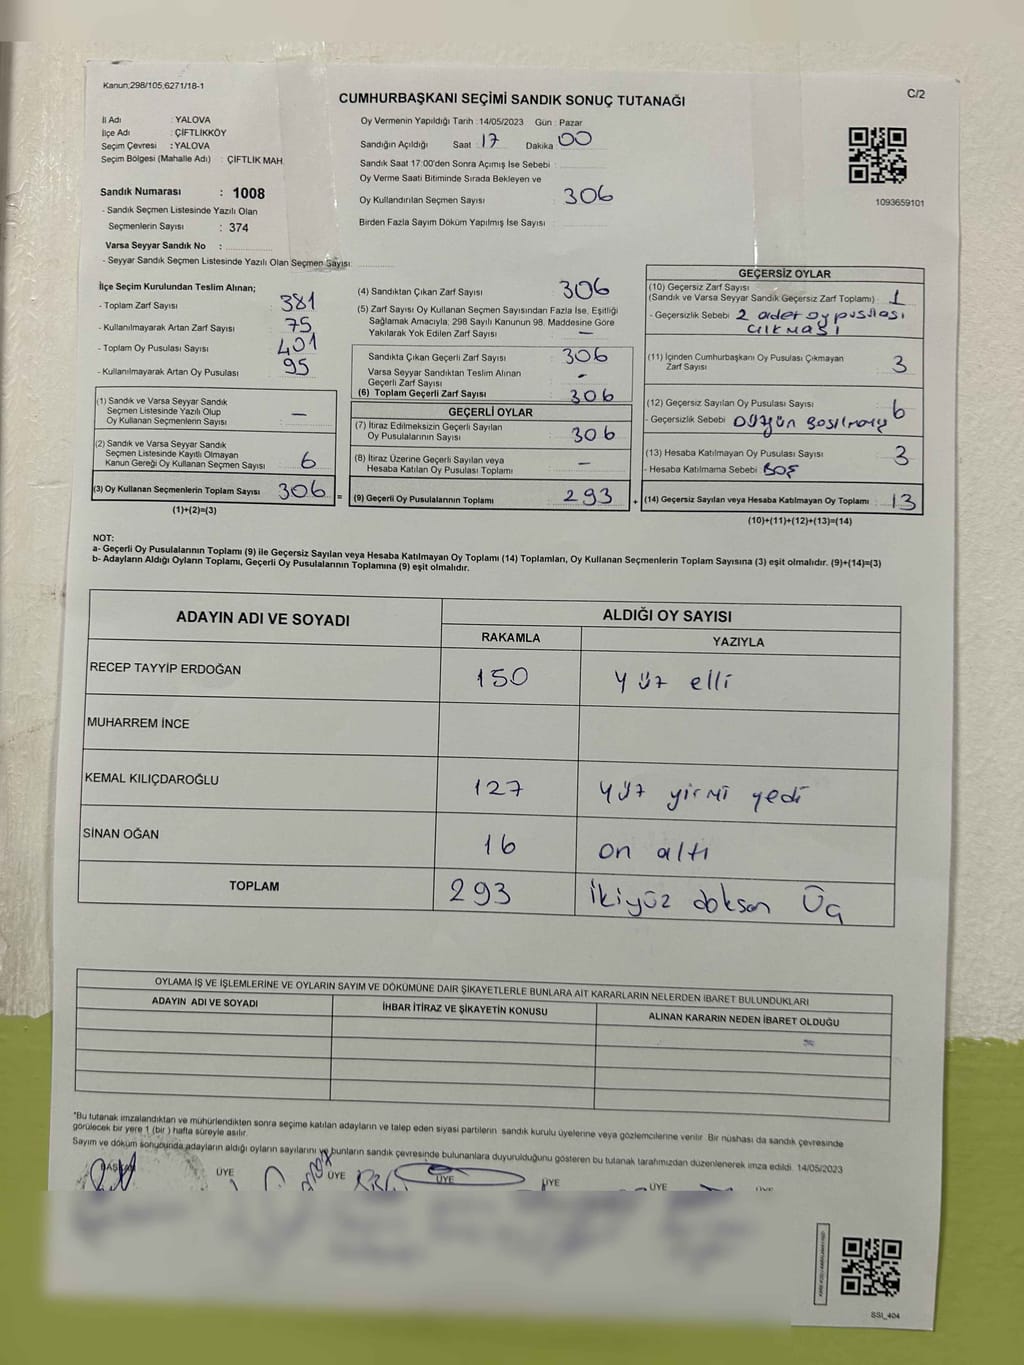 Kanun;298/105;6271/18-1
C/2
CUMHURBAŞKANI SEÇİMİ SANDIK SONUÇ TUTANAĞI
İl Adı : YALOVA
İlçe Adı : ÇİFTLİKKÖY
Seçim Çevresi : YALOVA
Seçim Bölgesi (Mahalle Adı) : ÇİFTLİK MAH.
Sandık Numarası : 1008
- Sandık Seçmen Listesinde Yazılı Olan
Seçmenlerin Sayısı : 374
Varsa Seyyar Sandık No :
- Seyyar Sandık Seçmen Listesinde Yazılı Olan Seçmen Sayısı:
Oy Vermenin Yapıldığı Tarih : 14/05/2023 Gün : Pazar
Sandığın Açıldığı Saat 17 Dakika 00
Sandık Saat 17:00'den Sonra Açımış İse Sebebi :
Oy Verme Saati Bitiminde Sırada Bekleyen ve
Oy Kullandırılan Seçmen Sayısı : 306
Birden Fazla Sayım Döküm Yapılmış İse Sayısı :
1093659101
İlçe Seçim Kurulundan Teslim Alınan;
- Toplam Zarf Sayısı : 381
- Kullanılmayarak Artan Zarf Sayısı : 75
- Toplam Oy Pusulası Sayısı : 401
- Kullanılmayarak Artan Oy Pusulası : 95
(1) Sandık ve Varsa Seyyar Sandık
Seçmen Listesinde Yazılı Olup
Oy Kullanan Seçmenlerin Sayısı : —
(2) Sandık ve Varsa Seyyar Sandık
Seçmen Listesinde Kayıtlı Olmayan
Kanun Gereği Oy Kullanan Seçmen Sayısı : 6
(3) Oy Kullanan Seçmenlerin Toplam Sayısı : 306 =
(1)+(2)=(3)
(4) Sandıktan Çıkan Zarf Sayısı : 306
(5) Zarf Sayısı Oy Kullanan Seçmen Sayısından Fazla İse, Eşitliği
Sağlamak Amacıyla; 298 Sayılı Kanunun 98. Maddesine Göre
Yakılarak Yok Edilen Zarf Sayısı : —
Sandıkta Çıkan Geçerli Zarf Sayısı : 306
Varsa Seyyar Sandıktan Teslim Alınan
Geçerli Zarf Sayısı : -
(6) Toplam Geçerli Zarf Sayısı : 306
GEÇERLİ OYLAR
(7) İtiraz Edilmeksizin Geçerli Sayılan
Oy Pusulalarının Sayısı : 306
(8) İtiraz Üzerine Geçerli Sayılan veya
Hesaba Katılan Oy Pusulası Toplamı : —
(9) Geçerli Oy Pusulalarının Toplamı : 293 +
GEÇERSİZ OYLAR
(10) Geçersiz Zarf Sayısı
(Sandık ve Varsa Seyyar Sandık Geçersiz Zarf Toplamı) : 1
- Geçersizlik Sebebi : 2 adet oy pusulası
çıkması
(11) İçinden Cumhurbaşkanı Oy Pusulası Çıkmayan
Zarf Sayısı : 3
(12) Geçersiz Sayılan Oy Pusulası Sayısı : 6
- Geçersizlik Sebebi : Düzgün
(13) Hesaba Katılmayan Oy Pusulası Sayısı : 3
- Hesaba Katılmama Sebebi : BOŞ
(14) Geçersiz Sayılan veya Hesaba Katılmayan Oy Toplamı : 13
(10)+(11)+(12)+(13)=(14)
NOT:
a- Geçerli Oy Pusulalarının Toplamı (9) ile Geçersiz Sayılan veya Hesaba Katılmayan Oy Toplamı (14) Toplamları, Oy Kullanan Seçmenlerin Toplam Sayısına (3) eşit olmalıdır. (9)+(14)=(3)
b- Adayların Aldığı Oyların Toplamı, Geçerli Oy Pusulalarının Toplamına (9) eşit olmalıdır.
ADAYIN ADI VE SOYADI
ALDIĞI OY SAYISI
RAKAMLA YAZIYLA
RECEP TAYYİP ERDOĞAN 150 Yüz elli
MUHARREM İNCE
KEMAL KILIÇDAROĞLU 127 Yüz yirmi yedi
SİNAN OĞAN 16 on altı
TOPLAM 293 İkiyüz doksan Üç
OYLAMA İŞ VE İŞLEMLERİNE VE OYLARIN SAYIM VE DÖKÜMÜNE DAİR ŞİKAYETLERLE BUNLARA AİT KARARLARIN NELERDEN İBARET BULUNDUKLARI
ADAYIN ADI VE SOYADI İHBAR İTİRAZ VE ŞİKAYETİN KONUSU ALINAN KARARIN NEDEN İBARET OLDUĞU
*Bu tutanak imzalandıktan ve mühürlendikten sonra seçime katılan adayların ve talep eden siyasi partilerin sandık kurulu üyelerine veya gözlemcilerine verilir. Bir nüshası da sandık çevresinde
görülecek bir yere 1 (bir) hafta süreyle asılır.
Sayım ve döküm sonucunda adayların aldığı oyların sayılarını ve bunların sandık çevresinde bulunanlara duyurulduğunu gösteren bu tutanak tarafımızdan düzenlenerek imza edildi. 14/05/2023
BAŞKAN ÜYE ÜYE ÜYE ÜYE ÜYE ÜYE
SSI_404